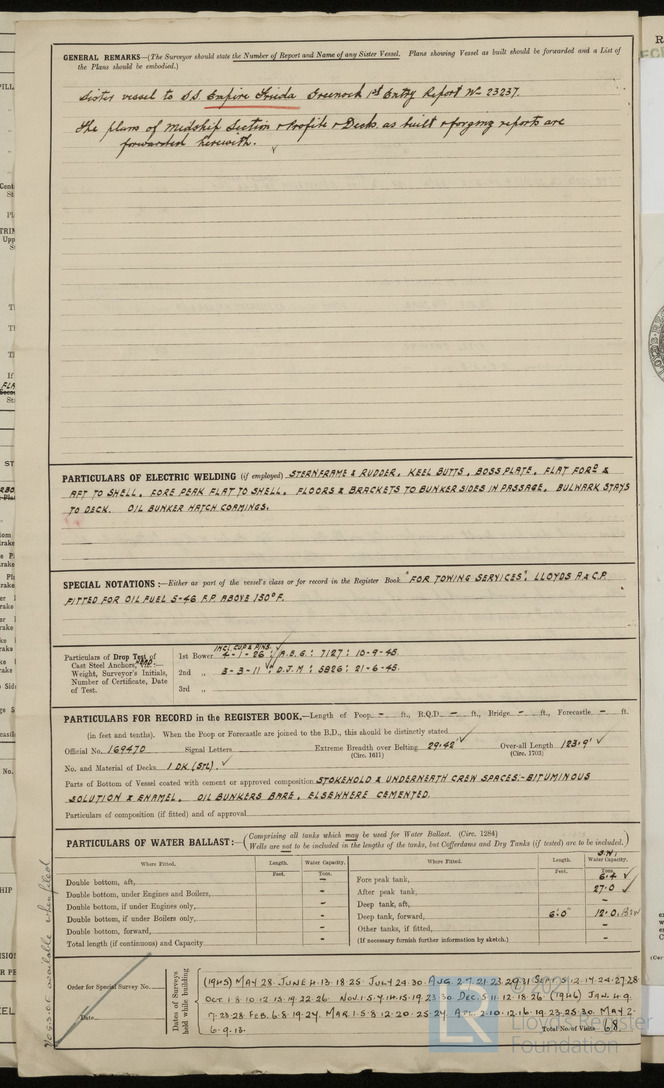 GENERAL REMARKS—(The Surveyor should state the Number of Report and Name of any Sister Vessel. Plans showing Vessel as built should be forwarded and a List of
the Plans should be embodied.)
Sister vessel to S.S. Empire Frieda Greenock 1st Entry Report No 23237.
The plans of Midship Section & Profile & Decks as built & forging reports are
forwarded herewith.
PARTICULARS OF ELECTRIC WELDING (if employed) STERNFRAME & RUDDER, KEEL BUTTS, BOSS PLATE, FLAT FORD &
AFT TO SHELL, FORE PEAK FLAT TO SHELL, FLOORS & BRACKETS TO BUNKER SIDES IN PASSAGE, BULWARK STAYS
TO DECK. OIL BUNKER HATCH COAMINGS.
SPECIAL NOTATIONS:—Either as part of the vessel's class or for record in the Register Book "FOR TOWING SERVICES". LLOYDS A & C.P.
FITTED FOR OIL FUEL 5-46 F.P. ABOVE 150°F.
Particulars of Drop Test of
Cast Steel Anchors, viz.:—
Weight, Surveyor's Initials,
Number of Certificate, Date
of Test.
INCL CUP & PINS.
1st Bower 4-1-26 : A.E.G : 7127 : 10-9-45.
2nd „ 3-3-11 : D.J.M : 5826 : 21-6-45.
3rd „
PARTICULARS FOR RECORD in the REGISTER BOOK.—Length of Poop - ft., R.Q.D. - ft., Bridge - ft., Forecastle - ft.
(in feet and tenths). When the Poop or Forecastle are joined to the B.D., this should be distinctly stated
Official No. 169470 Signal Letters Extreme Breadth over Belting 29.42' Over-all Length 123.9'
(Circ. 1611) (Circ. 1703)
No. and Material of Decks 1 DK (STL).
Parts of Bottom of Vessel coated with cement or approved composition STOKEHOLD & UNDERNEATH CREW SPACES:- BITUMINOUS
SOLUTION & ENAMEL, OIL BUNKERS BARE, ELSEWHERE CEMENTED.
Particulars of composition (if fitted) and of approval
PARTICULARS OF WATER BALLAST:—(Comprising all tanks which may be used for Water Ballast. (Circ. 1284)
Wells are not to be included in the lengths of the tanks, but Cofferdams and Dry Tanks (if tested) are to be included.)
Where Fitted. Length. Water Capacity.
Feet. Tons.
Double bottom, aft, -
Double bottom, under Engines and Boilers, -
Double bottom, if under Engines only, -
Double bottom, if under Boilers only, -
Double bottom, forward, -
Total length (if continuous) and Capacity -
Where Fitted. Length. Water Capacity.
Feet. Tons.
Fore peak tank, 6.4
After peak tank, 27.0
Deep tank, aft, -
Deep tank, forward, 6'.0" 12.0
Other tanks, if fitted, -
(If necessary furnish further information by sketch.)
Order for Special Survey No.
Date
Dates of Surveys
held while building
(1945) MAY 28. JUNE 4.13.18.25 JULY 24.30. AUG 2.7.21.23.29.31 SEPT 5.12.17.24.27.28.
OCT. 1.8.10.12.15.19.22.26. NOV. 1.5.7.14.15.19.23.30. DEC. 5.11.12.18.26. (1946) JAN. 4.9.
17.23.28. FEB. 6.8.19.24. MAR. 1.5.8.12.20.25.27. APL. 2.10.12.16.19.23.25.30. MAY 2.
6.9.13.
Total No. of Visits 68.
© 2021
Lloyd's Register
Foundation